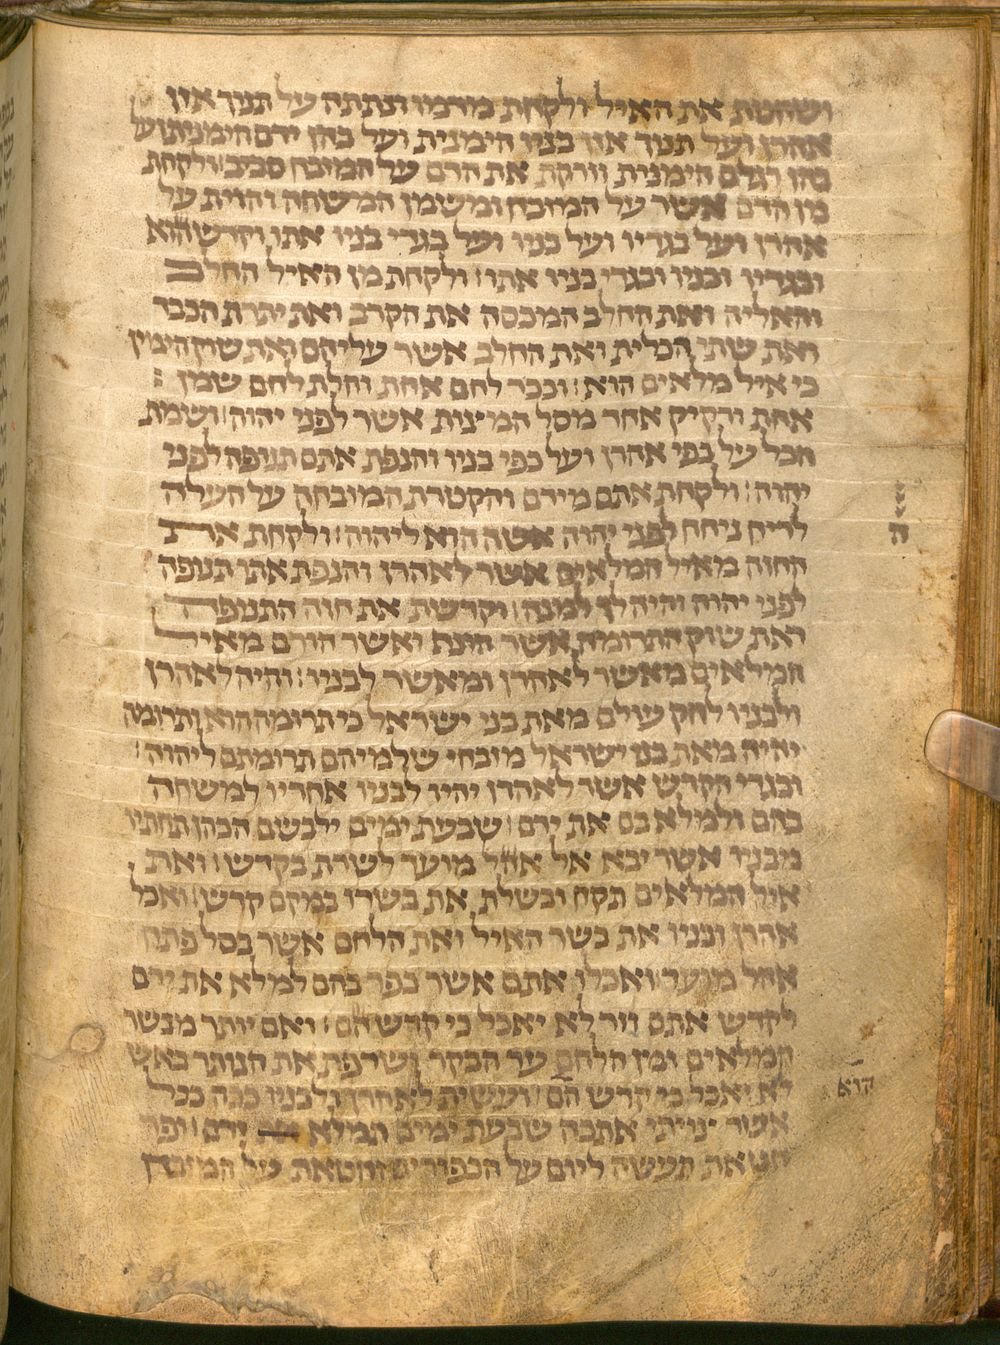 ושחטת את האיל ולקחת מדמו ונתתה על תנוך אזן
אהרן ועל תנוך אזן בניו הימנית ועל בהן ידם הימנית ועל
בהן רגלם הימנית וזרקת את הדם על המזבח סביב׃ ולקחת
מן הדם אשר על המזבח ומשמן המשחה והזית על
אהרן ועל בגדיו ועל בניו ועל בגדי בניו אתו וקדש הוא
ובגדיו ובניו ובגדי בניו אתו׃ ולקחת מן האיל החלב
והאליה ואת החלב המכסה את הקרב ואת יתרת הכבד
ואת שתי הכלית ואת החלב אשר עליהם ואת שוק הימין
כי איל מלאים הוא׃ וככר לחם אחת וחלת לחם שמן
אחת ורקיק אחד מסל המיצות אשר לפני יהוה׃ ושמת
הכל על כפי אהרן ועל כפי בניו והנפת אתם תנופה לפני
יהוה׃ ולקחת אתם מידם והקטרת המזבחה על העלה
לריח ניחח לפני יהוה אשה הוא ליהוה׃ ולקחת את
החזה מאיל המלאים אשר לאהרן והנפת אתו תנופה
לפני יהוה והיה לך למנה׃ וקדשת את חזה התנופה
ואת שוק התרומה אשר הונף ואשר הורם מאיל
המלאים מאשר לאהרן ומאשר לבניו׃ והיה לאהרן
ולבניו לחק עולם מאת בני ישראל כי תרומה הוא ותרומה
יהיה מאת בני ישראל מזבחי שלמיהם תרומתם ליהוה׃
ובגדי הקדש אשר לאהרן יהיו לבניו אחריו למשחה
בהם ולמלא בם את ידם׃ שבעת ימים ילבשם הכהן תחתיו
מבניו אשר יבא אל אהל מועד לשרת בקדש׃ ואת
איל המלאים תקח ובשלת את בשרו במקם קדש׃ ואכל
אהרן ובניו את בשר האיל ואת הלחם אשר בסל פתח
אהל מועד׃ ואכלו אתם אשר כפר בהם למלא את ידם
לקדש אתם וזר לא יאכל כי קדש הם׃ ואם יותר מבשר
המלאים ומן הלחם עד הבקר ושרפת את הנותר באש
לא יאכל כי קדש הם׃ ועשית לאהרן ולבניו ככה ככל
הוא
אשר צויתי אתכה שבעת ימים תמלא ידם׃ ופר
חטאת תעשה ליום על הכפורים וחטאת על המזבח